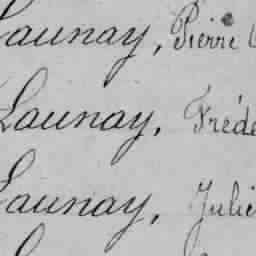 Launay, Pierre
Launay, Fréde
Launay, Julie